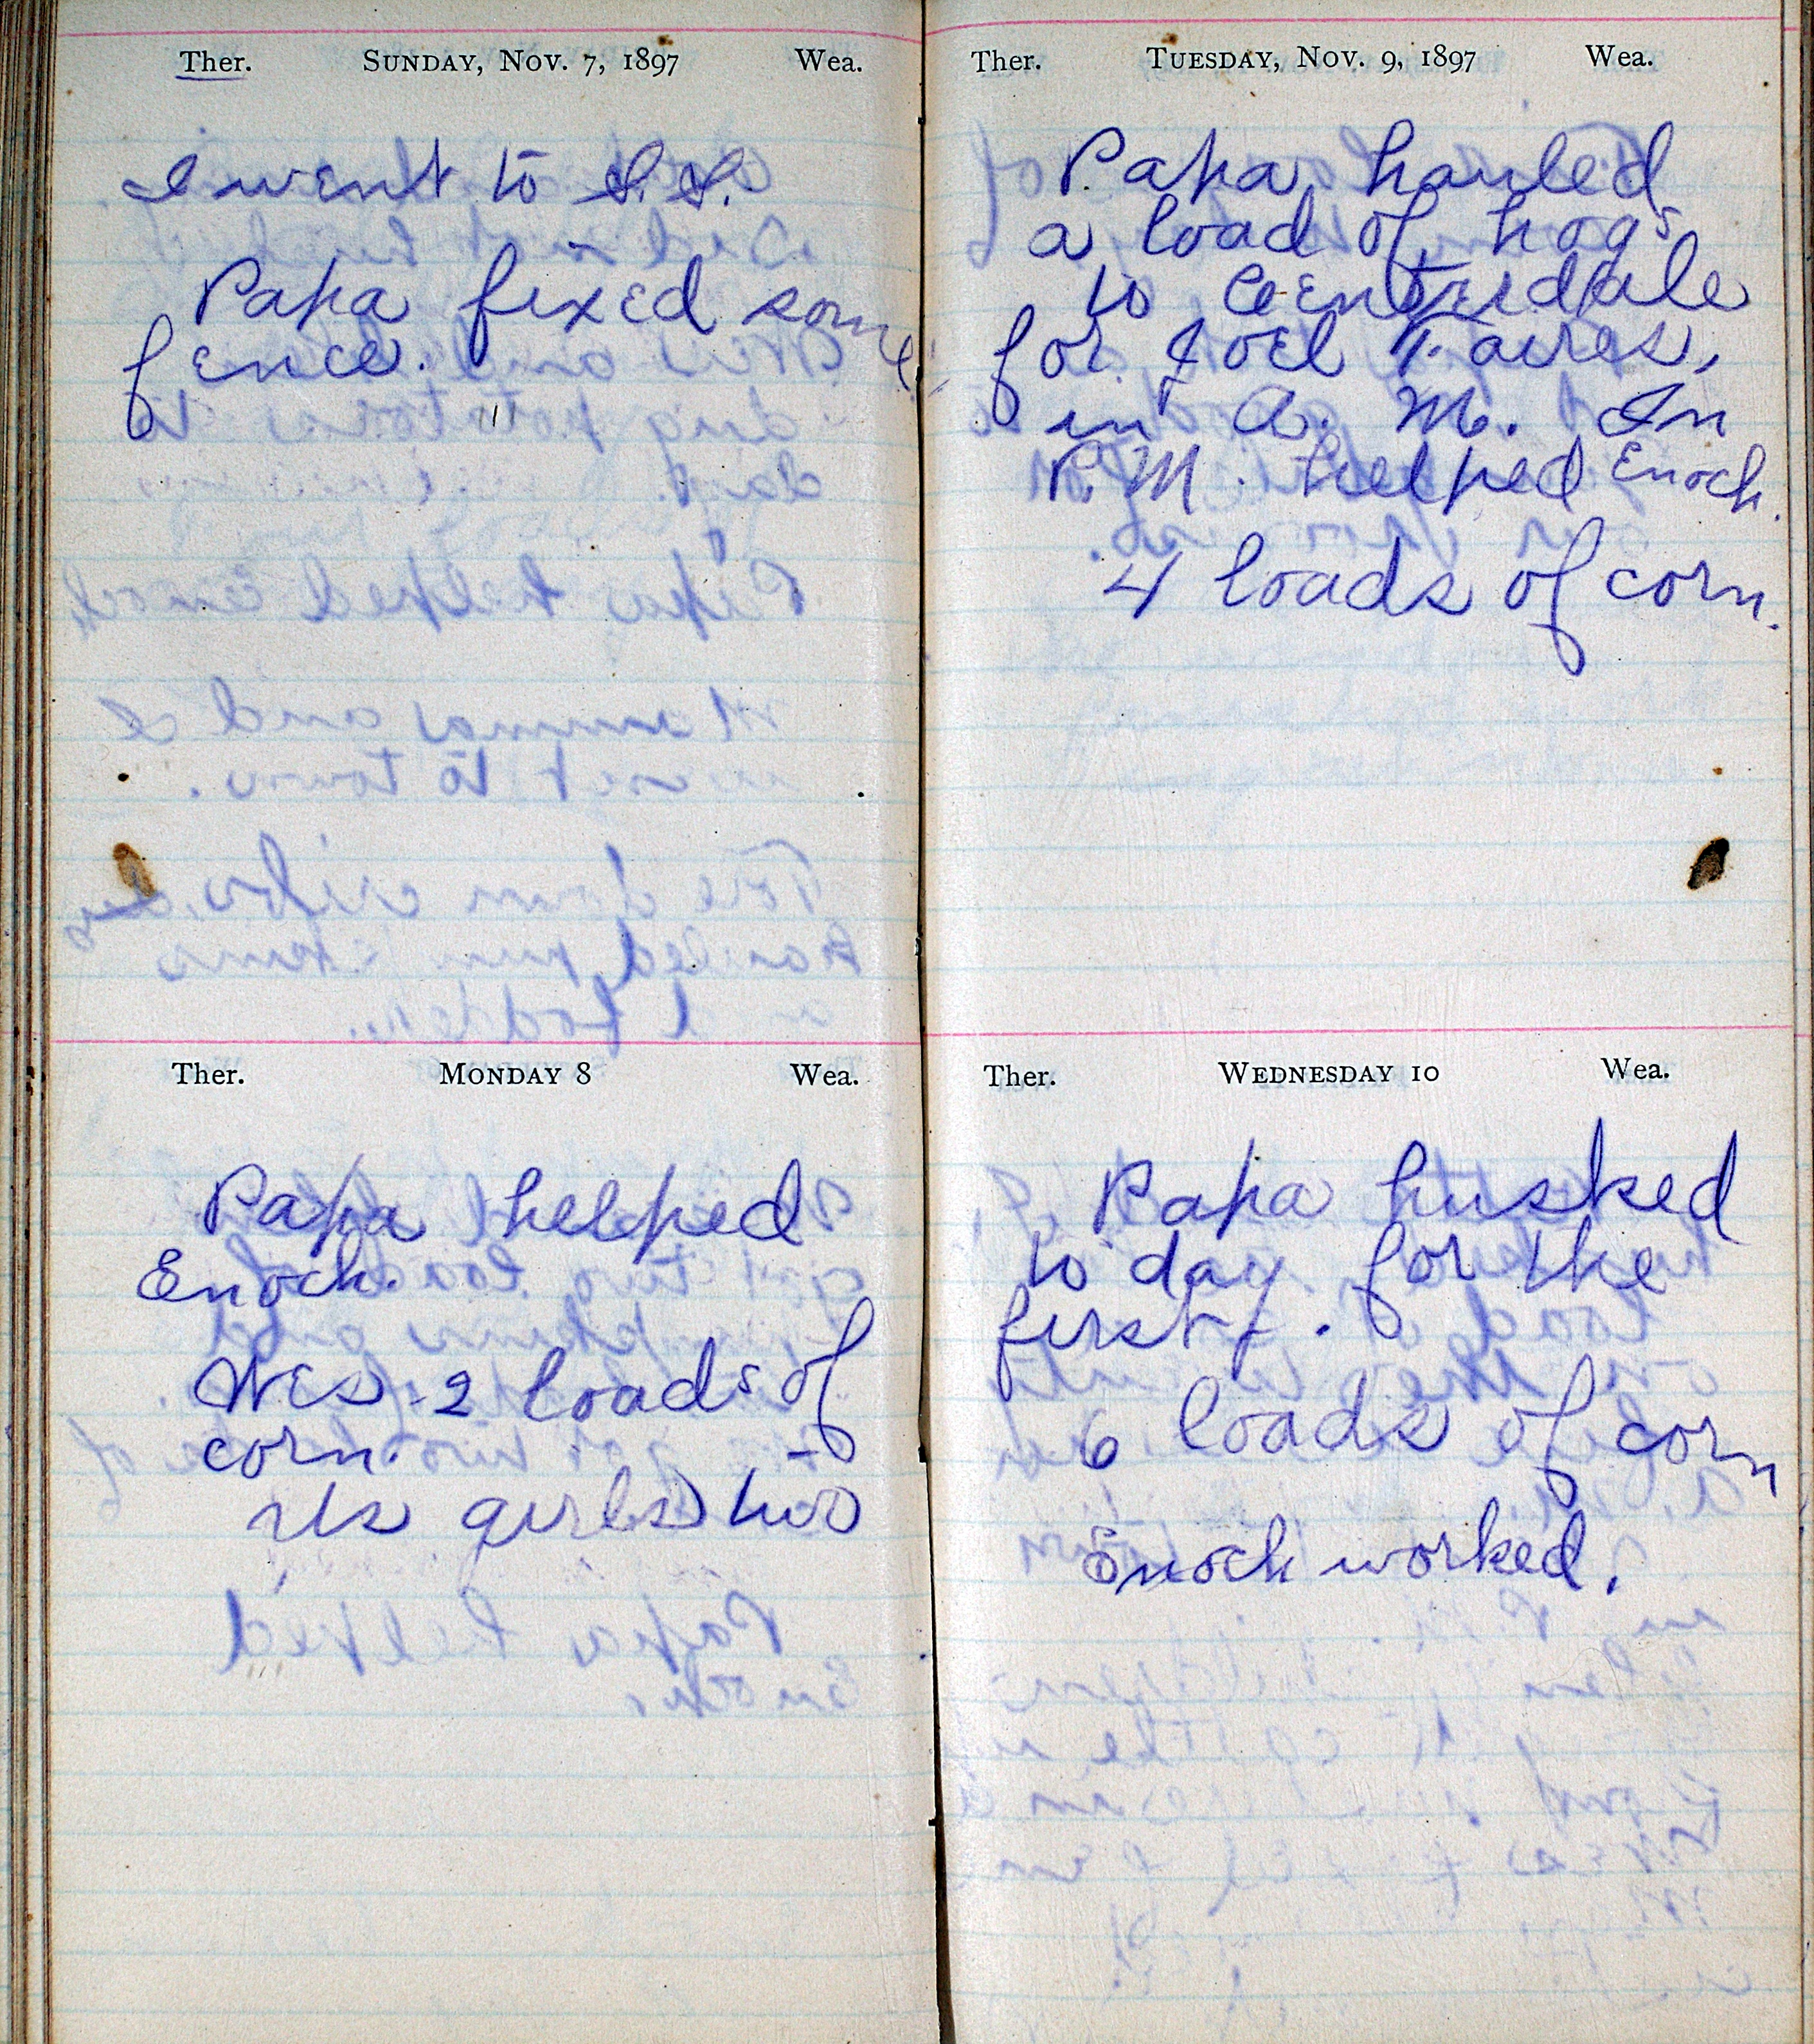 Ther. SUNDAY, NOV. 7, 1897 Wea.
I went to S.S.
Papa fixed some
fence.
Ther. MONDAY 8 Wea.
Papa helped
Enoch.
Wes 2 loads of
corn.
Us girls two
Ther. TUESDAY, NOV. 9, 1897 Wea.
Papa hauled
a load of hogs
to Centerdale
for Joel Faires,
in A. M. In
P. M. helped Enoch.
4 loads of corn.
Ther. WEDNESDAY 10 Wea.
Papa husked
to day for the
first.
6 loads of corn
Enoch worked.